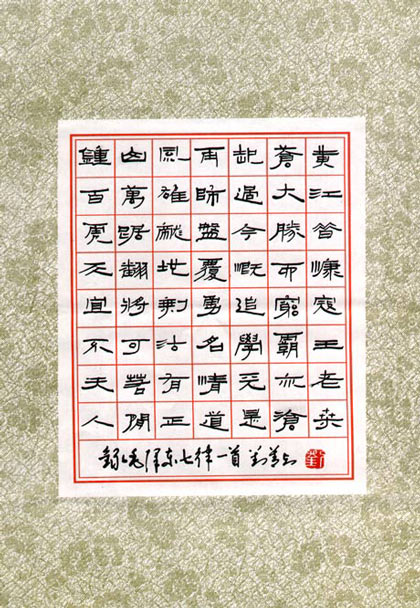 鍾山風雨起蒼黃
百萬雄師過大江
虎踞龍盤今勝昔
天翻地覆慨而慷
宜將剩勇追窮寇
不可沽名學霸王
天若有情天亦老
人間正道是滄桑
錄毛澤東七律一首 劉善
劉